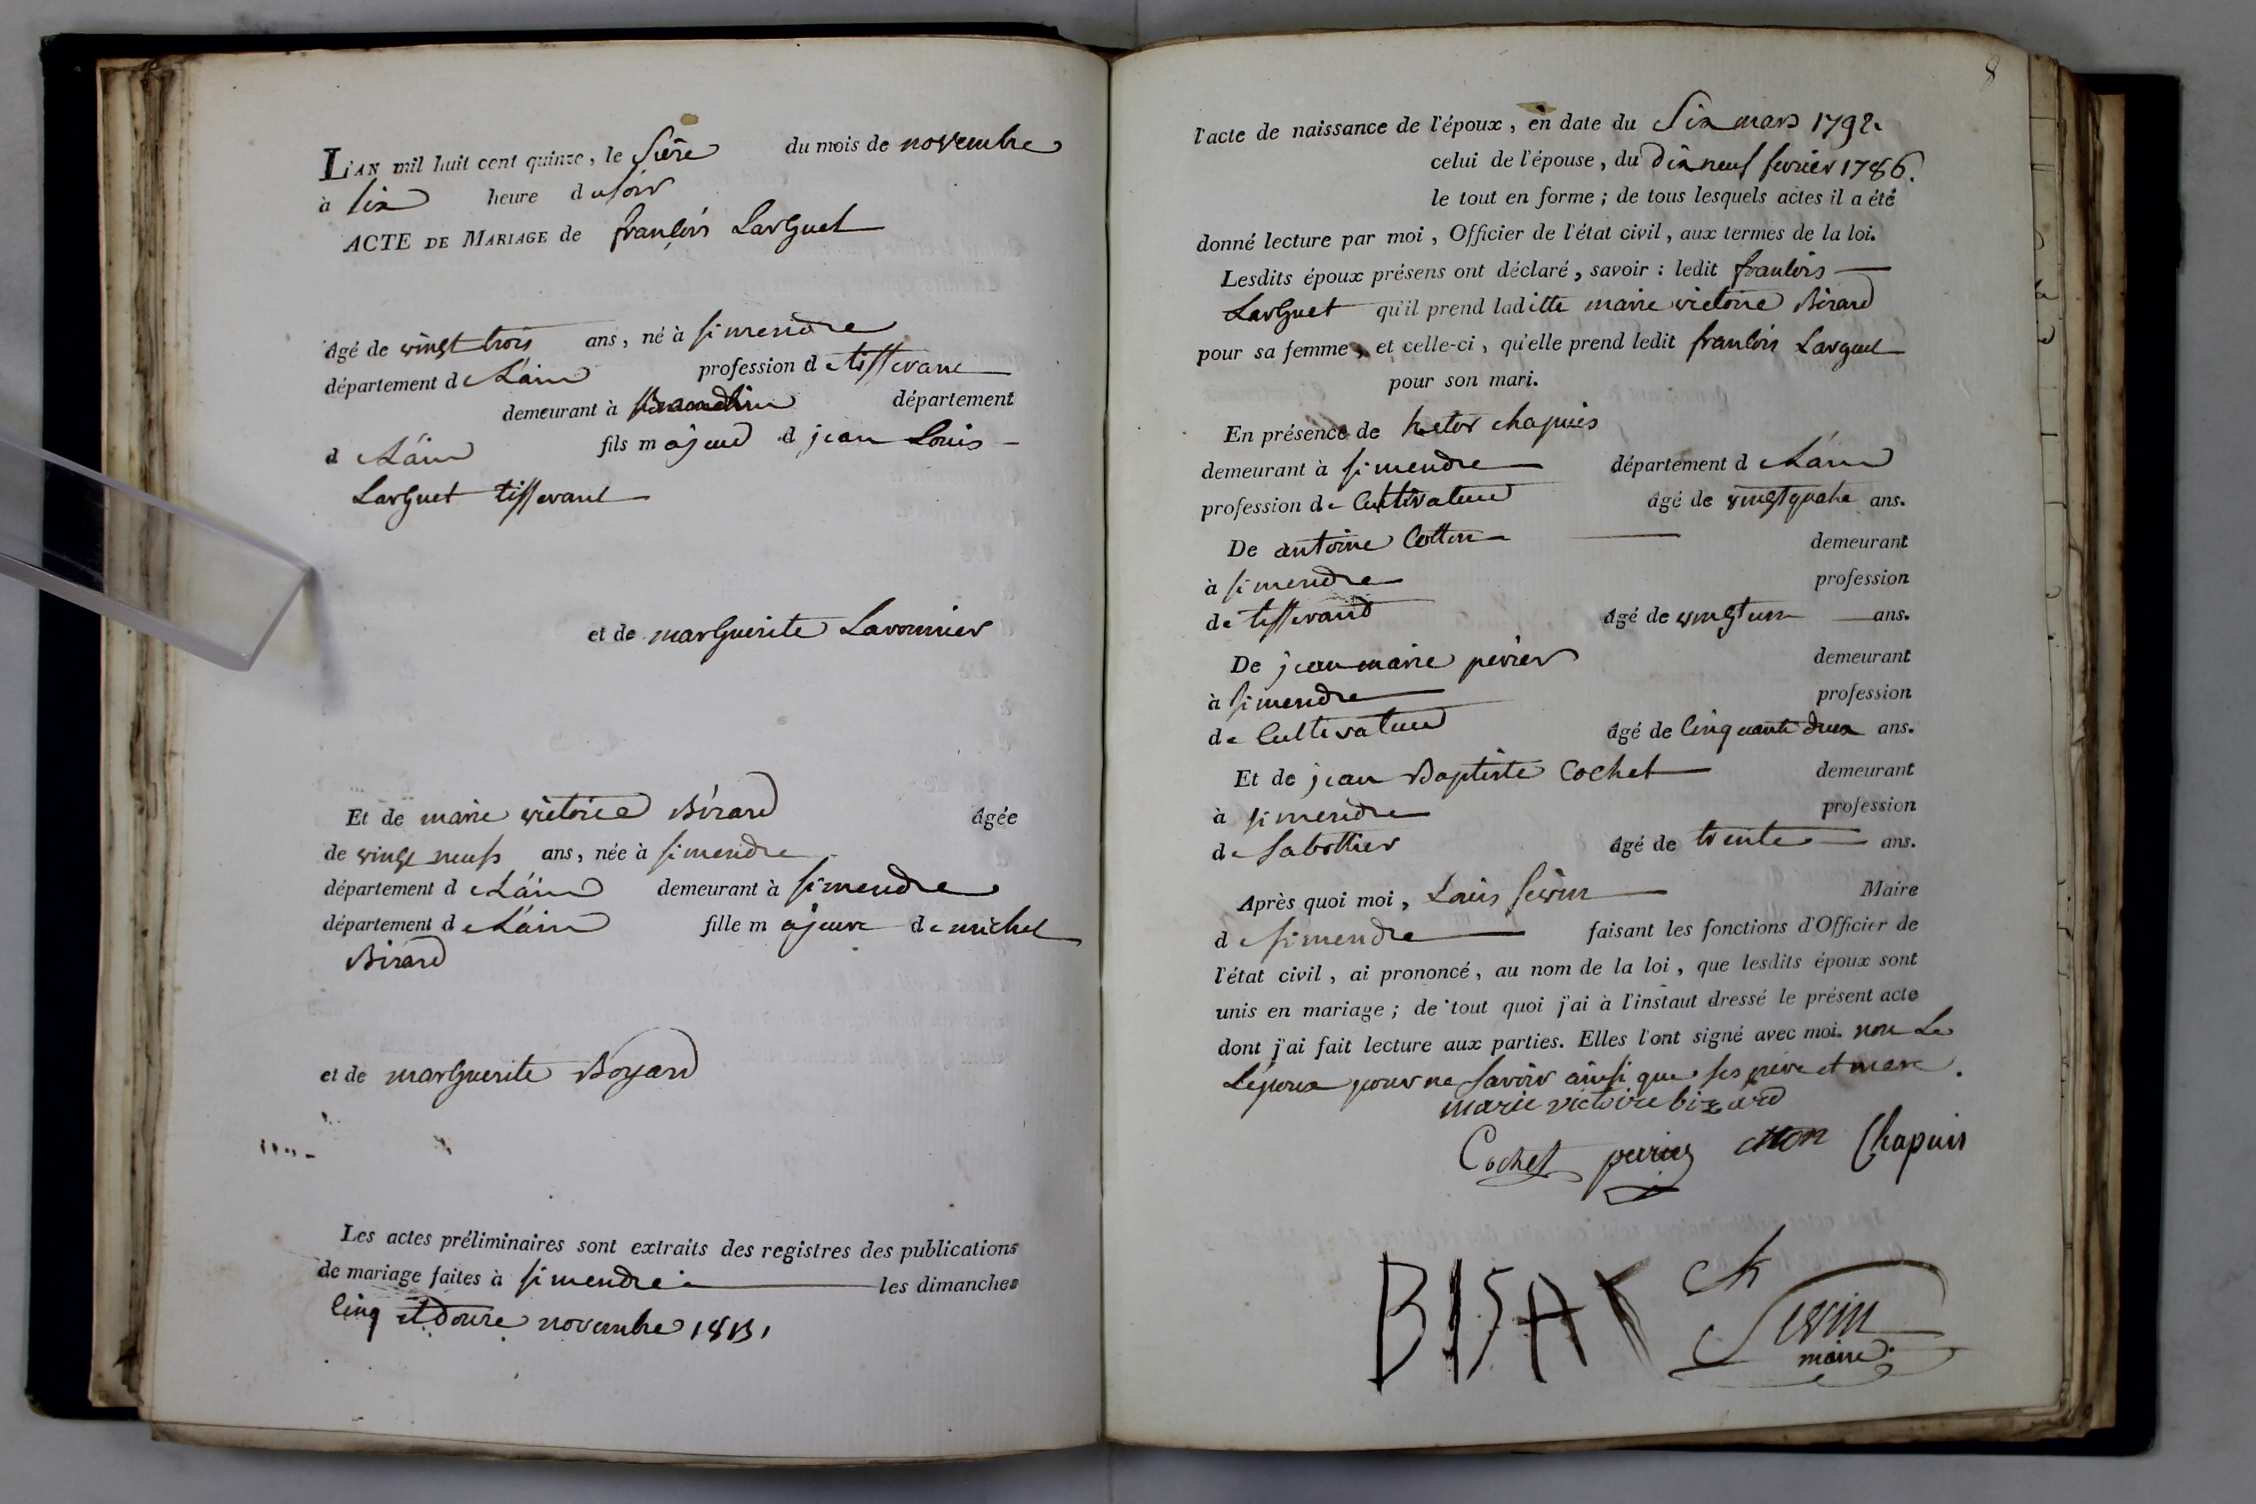 L'AN mil huit cent quinze, le seize du mois de novembre
à six heure du soir
ACTE DE MARIAGE de françois Larguet
âgé de vingt trois ans, né à simendre
département de L'ain profession de tisserant
demeurant à département
de L'ain fils majeur de jean Louis
Larguet tisserant
et de marguerite Lavonnier
Et de marie victoire Bizard âgée
de vingt neufs ans, née à simendre
département de L'ain demeurant à simendre
département de L'ain fille majeure de michel
Bizard
et de marguerite Boyard
Les actes préliminaires sont extraits des registres des publications
de mariage faites à simendre les dimanches
cinq et douze novembre 1815
8
l'acte de naissance de l'époux, en date du six mars 1792.
celui de l'épouse, du dix neuf fevrier 1786.
le tout en forme; de tous lesquels actes il a été
donné lecture par moi, Officier de l'état civil, aux termes de la loi.
Lesdits époux présens ont déclaré, savoir : ledit francois
Larguet qu'il prend laditte marie victoire Bizard
pour sa femme, et celle-ci, qu'elle prend ledit francois Larguet
pour son mari.
En présence de hector chapuis
demeurant à simendre département de L'ain
profession de Cultivateur âgé de vingt quatre ans.
De antoine Cotton demeurant
à simendre profession
de tisserand âgé de vingt un ans.
De jean marie perier demeurant
à simendre profession
de Cultivateur âgé de cinquante deux ans.
Et de jean Baptiste Cochet demeurant
à simendre profession
de Sabottier âgé de trente ans.
Après quoi moi, Louis sevin Maire
de simendre faisant les fonctions d'Officier de
l'état civil, ai prononcé, au nom de la loi, que lesdits époux sont
unis en mariage; de tout quoi j'ai à l'instant dressé le présent acte
dont j'ai fait lecture aux parties. Elles l'ont signé avec moi. non Le
L'époux pour ne savoir ainsi que ses pere et mere.
marie victoire bizard
Cochet perier cotton Chapuis
BISAR
Sevin
maire